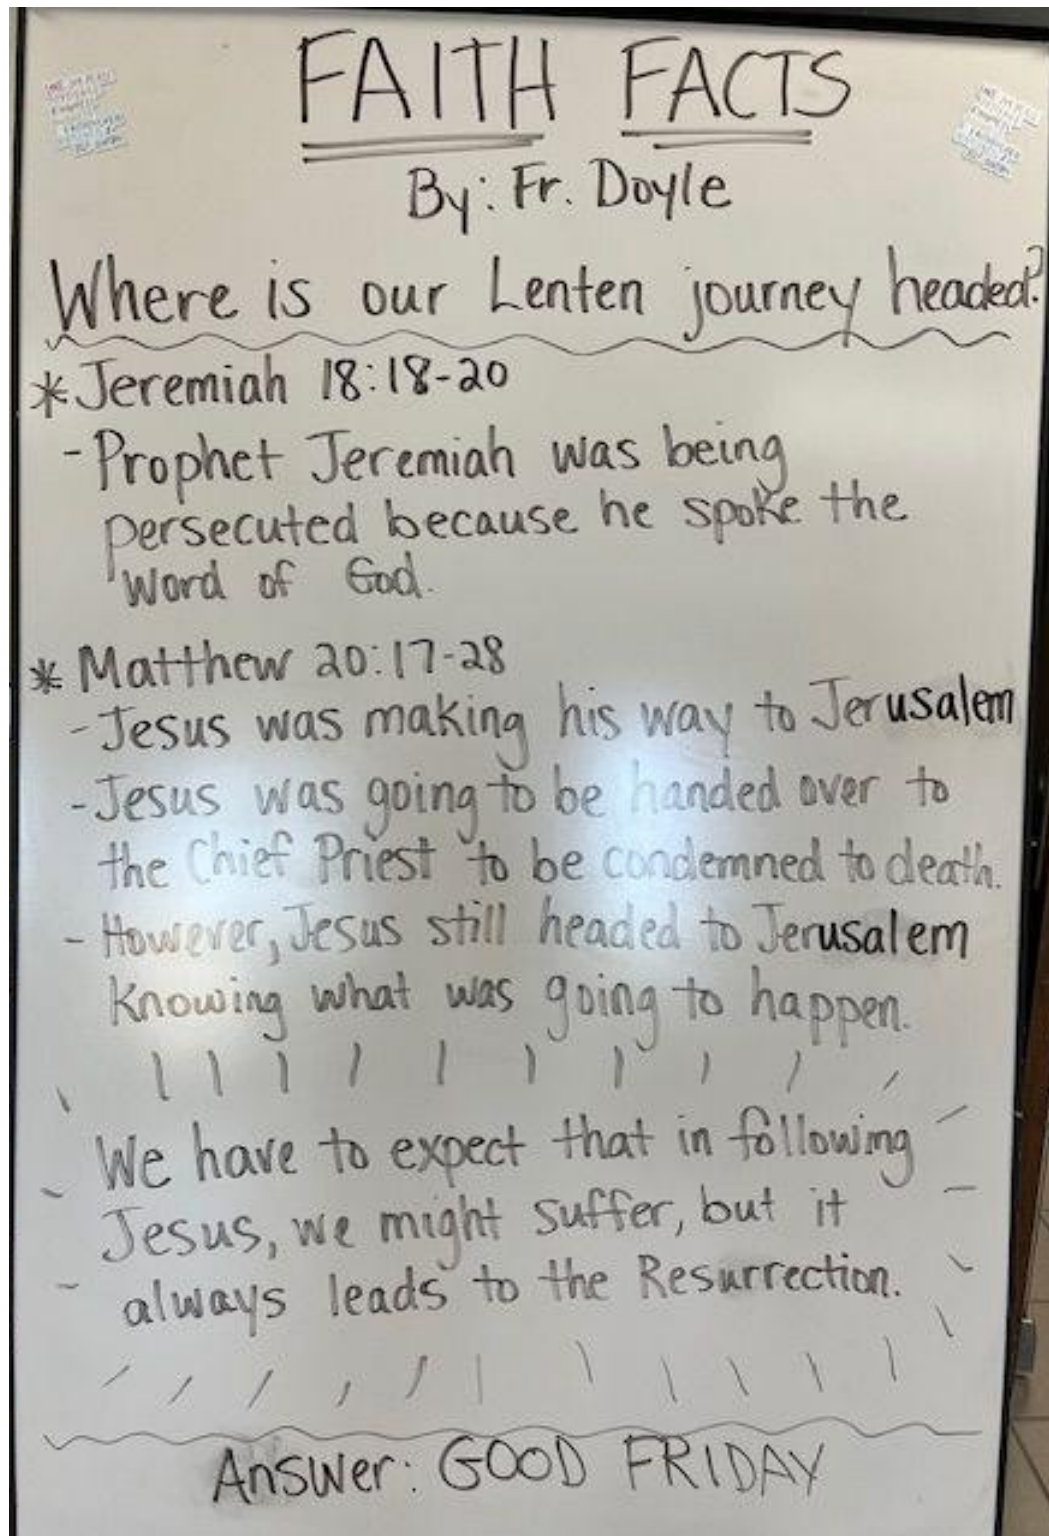 FAITH FACTS
By: Fr. Doyle
Where is our Lenten journey headed?
* Jeremiah 18:18-20
- Prophet Jeremiah was being
persecuted because he spoke the
Word of God.
* Matthew 20:17-28
- Jesus was making his way to Jerusalem
- Jesus was going to be handed over to
the Chief Priest to be condemned to death.
- However, Jesus still headed to Jerusalem
Knowing what was going to happen.
We have to expect that in following
Jesus, we might suffer, but it
always leads to the Resurrection.
Answer: GOOD FRIDAY